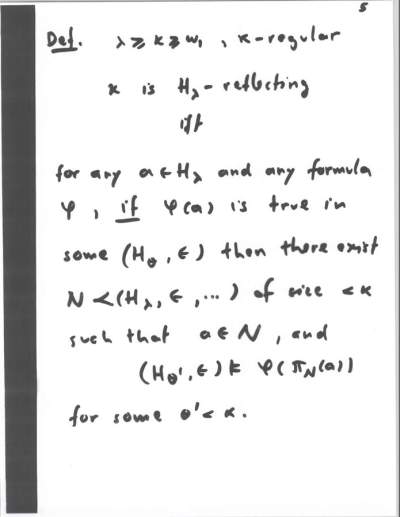 5
Def. λ ≥ κ ≥ ω₁ , κ-regular
κ is H_λ-reflecting
iff
for any a ∈ H_λ and any formula
φ , if φ(a) is true in
some (H_θ , ∈) then there exist
N ≺ (H_λ, ∈ , ...) of size < κ
such that a ∈ N , and
(H_θ', ∈) ⊨ φ(π_N(a))
for some θ' < κ.